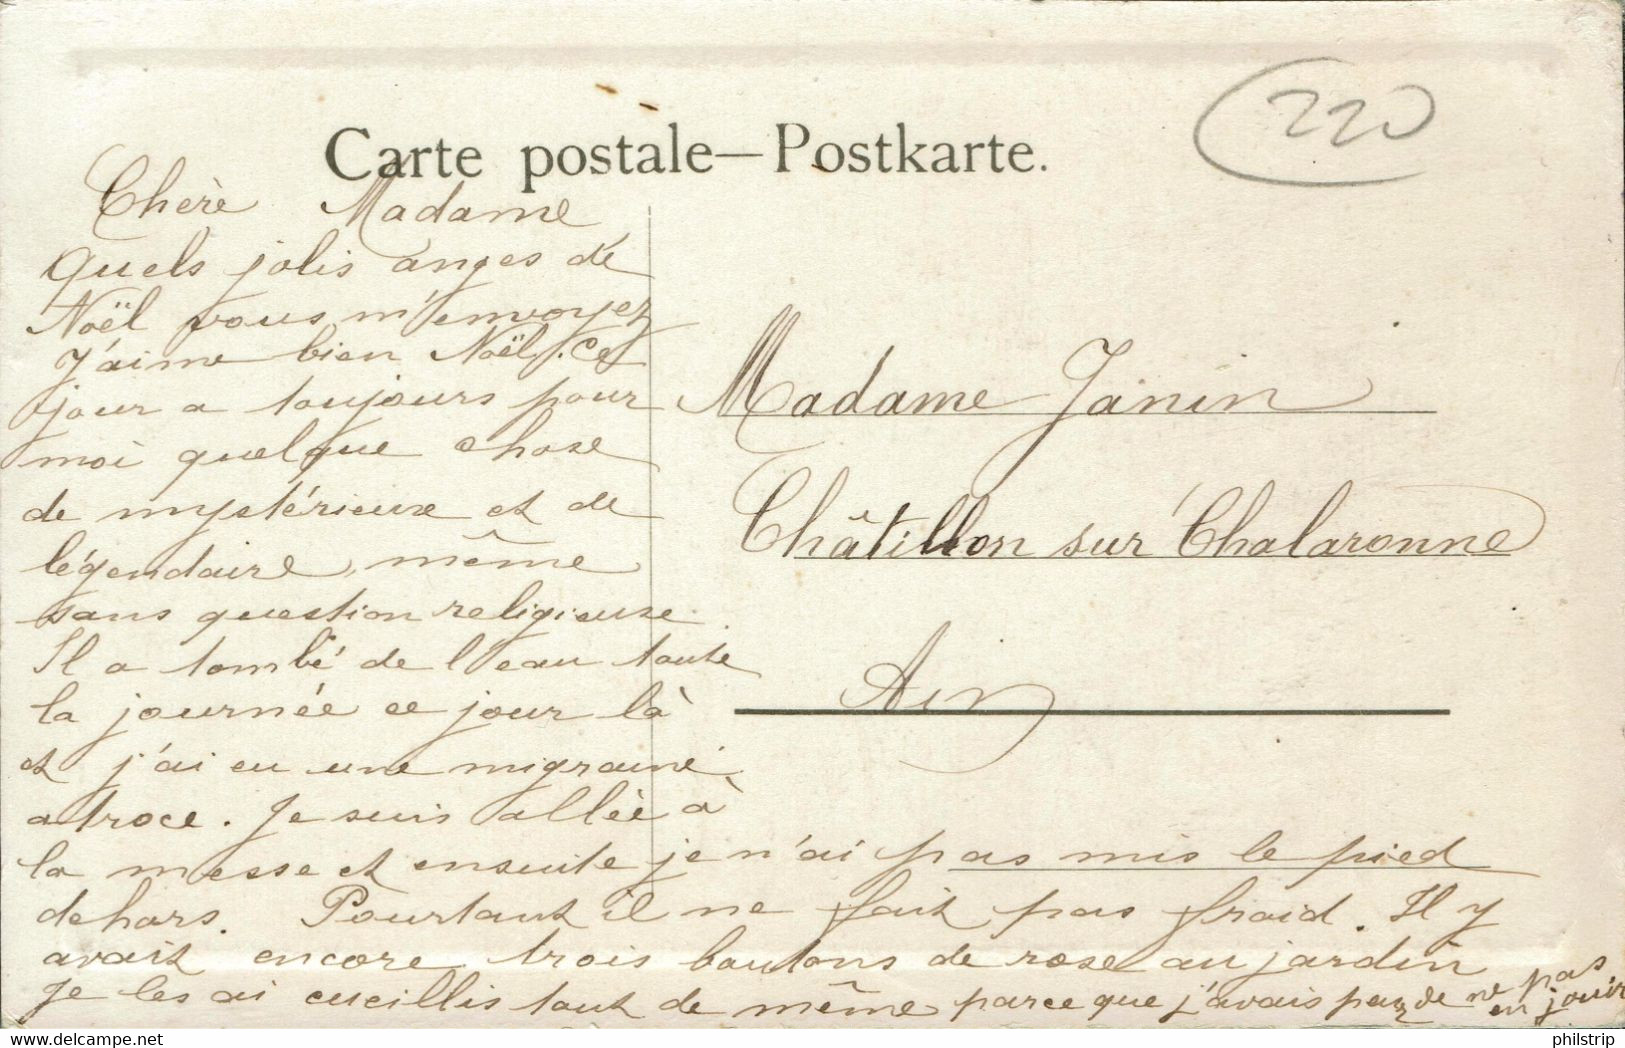 220
Carte postale—Postkarte.
Chère Madame
Quels jolis anges de
Noël vous m'envoyez
J'aime bien Noël. Ce
jour a toujours pour
moi quelque chose
de mystérieux et de
légendaire, même
sans question religieuse.
Il a tombé de l'eau toute
la journée ce jour là
et j'ai eu une migraine
atroce. Je suis allée à
la messe et ensuite je n'ai pas mis le pied
dehors. Pourtant il ne fait pas froid. Il y
avait encore trois boutons de rose au jardin
Je les ai cueillis tout de même parce que j'avais peur de ne pas
en jouir
Madame Janin
Châtillon sur Chalaronne
Ain
delcampe.net
philstrip